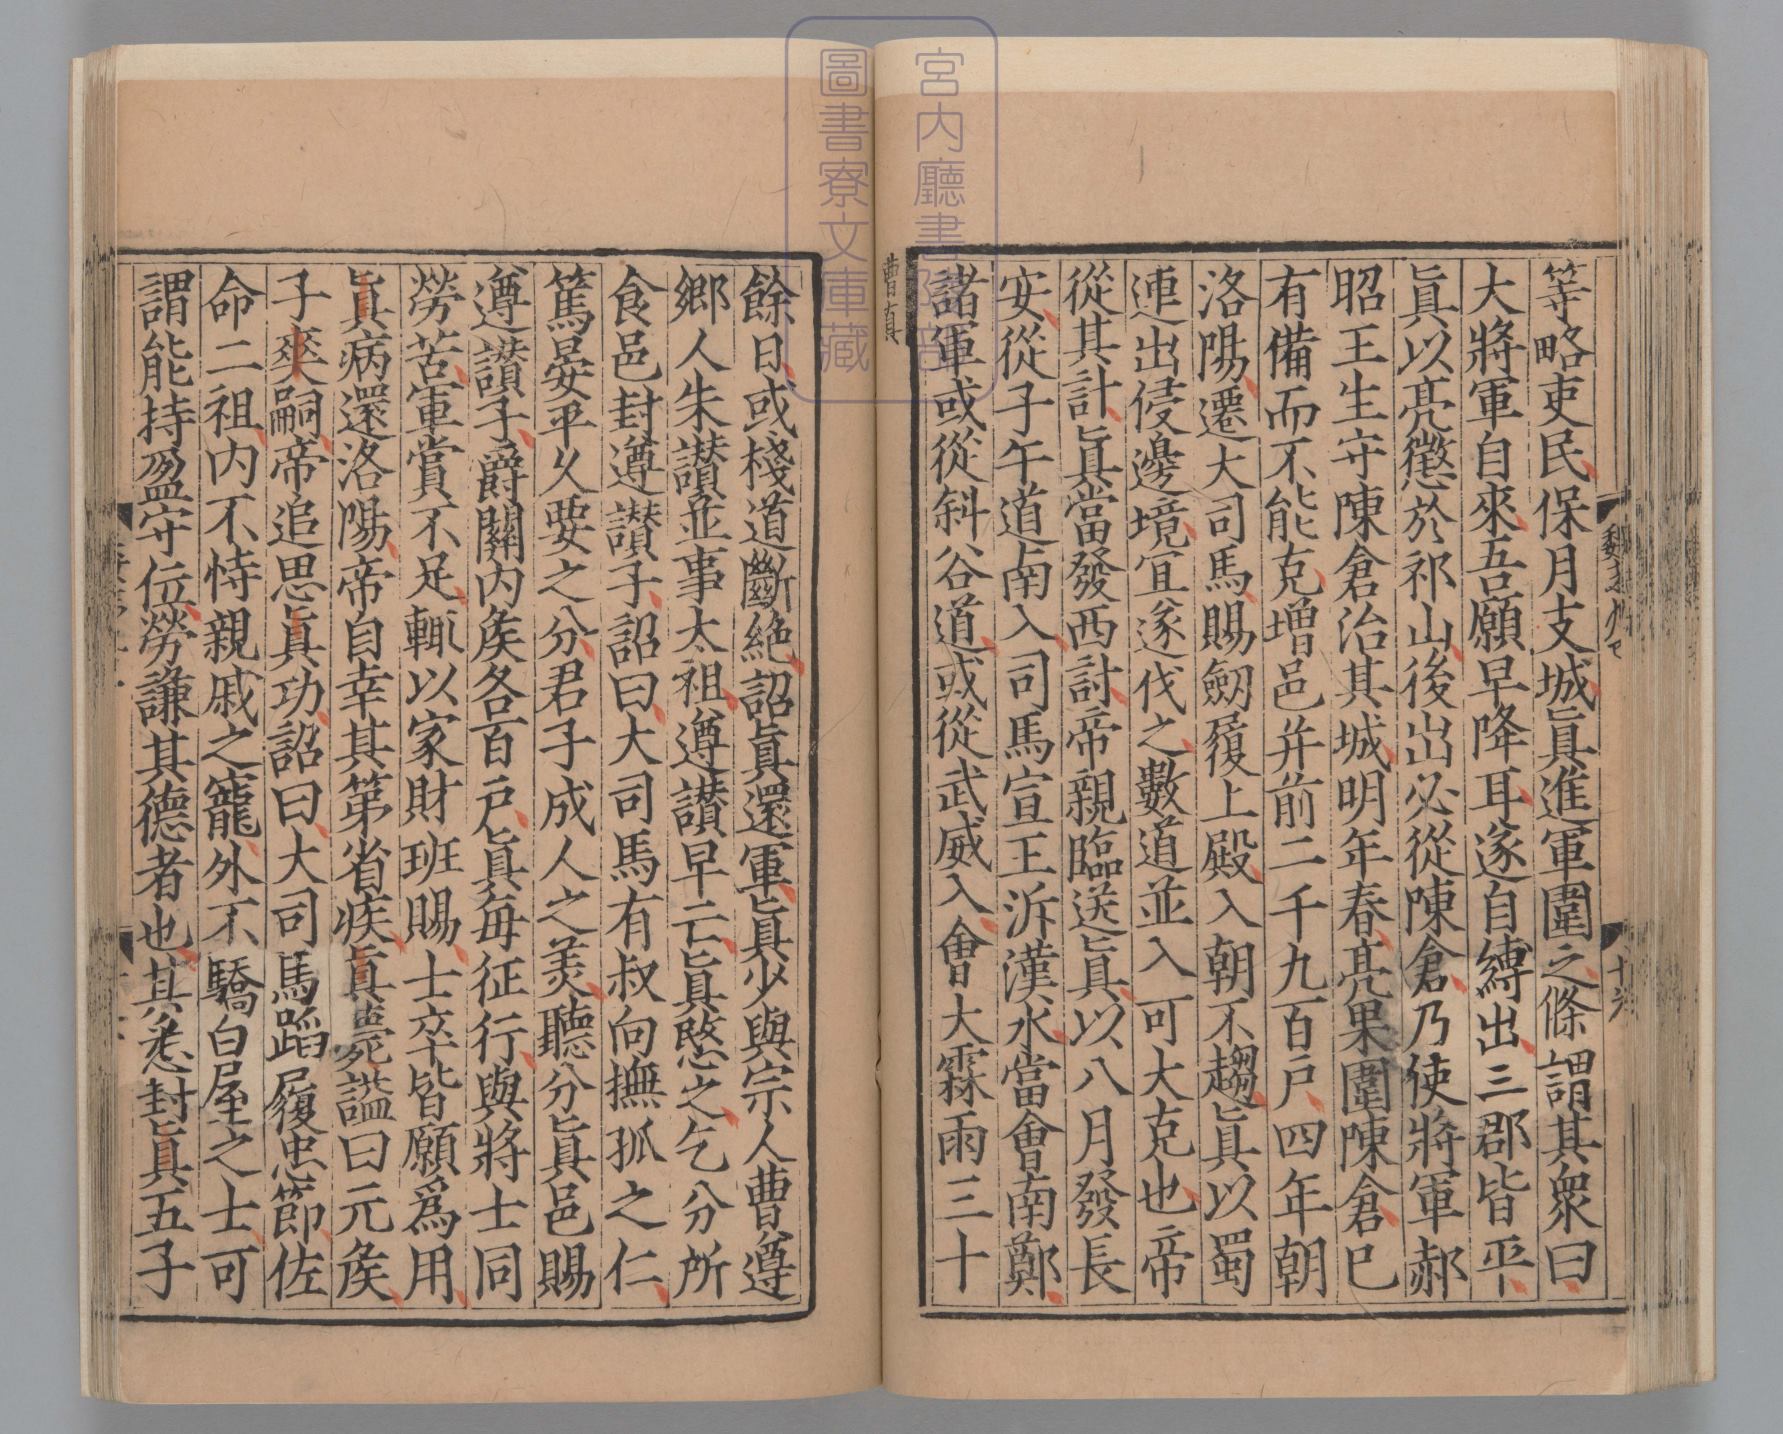 等略吏民保月支城真進軍圍之條謂其衆曰
大將軍自來吾願早降耳遂自縛出三郡皆平
真以亮懲於祁山後出必從陳倉乃使將軍郝
昭王生守陳倉治其城明年春亮果圍陳倉已
有備而不能克增邑并前二千九百戶四年朝
洛陽遷大司馬賜劒履上殿入朝不趨真以蜀
連出侵邊境宜遂伐之數道並入可大克也帝
從其計真當發西討帝親臨送真以八月發長
安從子午道南入司馬宣王泝漢水當會南鄭
諸軍或從斜谷道或從武威入會大霖雨三十
曹真
餘日或棧道斷絶詔真還軍真少與宗人曹遵
鄉人朱讃並事太祖遵讃早亡真愍之乞分所
食邑封遵讃子詔曰大司馬有叔向撫孤之仁
篤晏平久要之分君子成人之美聽分真邑賜
遵讃子爵關内矦各百戶真每征行與將士同
勞苦軍賞不足輒以家財班賜士卒皆願爲用
真病還洛陽帝自幸其第省疾真薨謚曰元矦
子爽嗣帝追思真功詔曰大司馬蹈履忠節佐
命二祖内不恃親戚之寵外不驕白屋之士可
謂能持盈守位勞謙其德者也其悉封真五子
宮内廳書陵部
圖書寮文庫藏